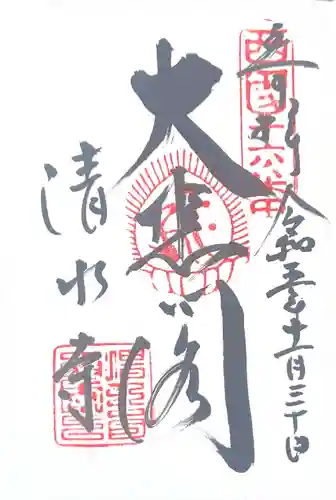 奉拝
令和五年十一月三十日
西國十六番
大悲閣
清水寺